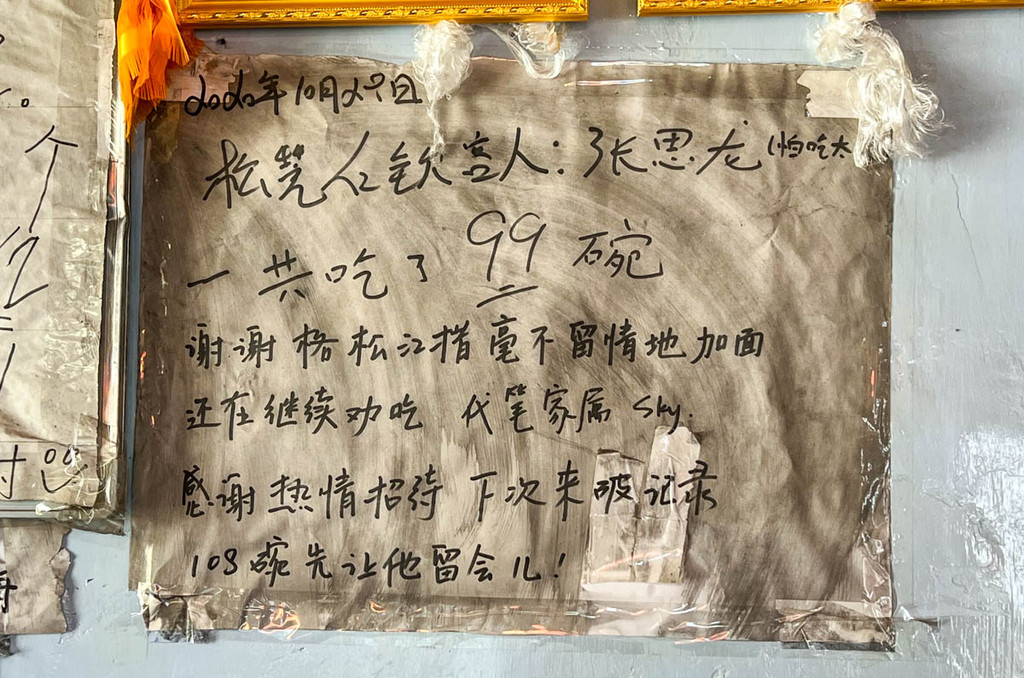 2020年10月29日
松赞仁钦客人：张思龙(怕吃太
一共吃了 99 碗
谢谢格松江措毫不留情地加面
还在继续劝吃 代笔家属 Sky.
感谢热情招待 下次来破记录
108碗先让他留会儿！
个